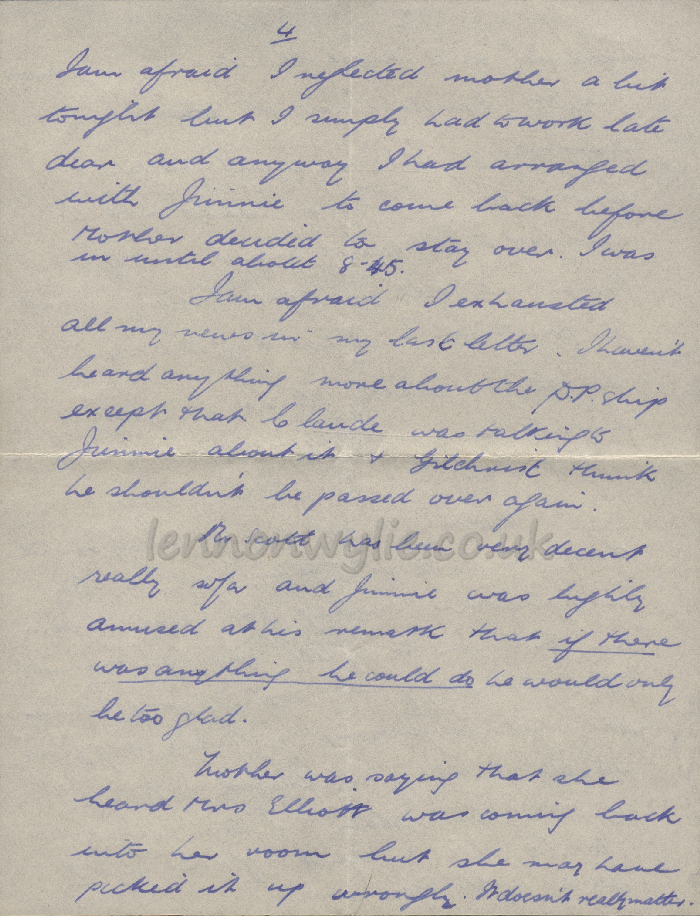 4
I am afraid I neglected mother a bit
tonight but I simply had to work late
dear and anyway I had arranged
with Jimmie to come back before
Mother decided to stay over. I was
in until about 8-45.
I am afraid I exhausted
all my news in my last letter. I haven't
heard anything more about the D.P. ship
except that Claude was talking to
Jimmie about it & Gilchrist think
he shouldn't be passed over again.
Mr Scott has been very decent
really so far and Jimmie was highly
amused at his remark that if there
was anything he could do he would only
be too glad.
Mother was saying that she
heard Mrs Elliott was coming back
into her room but she may have
picked it up wrongly. It doesn't really matter.
lennonwylie.co.uk